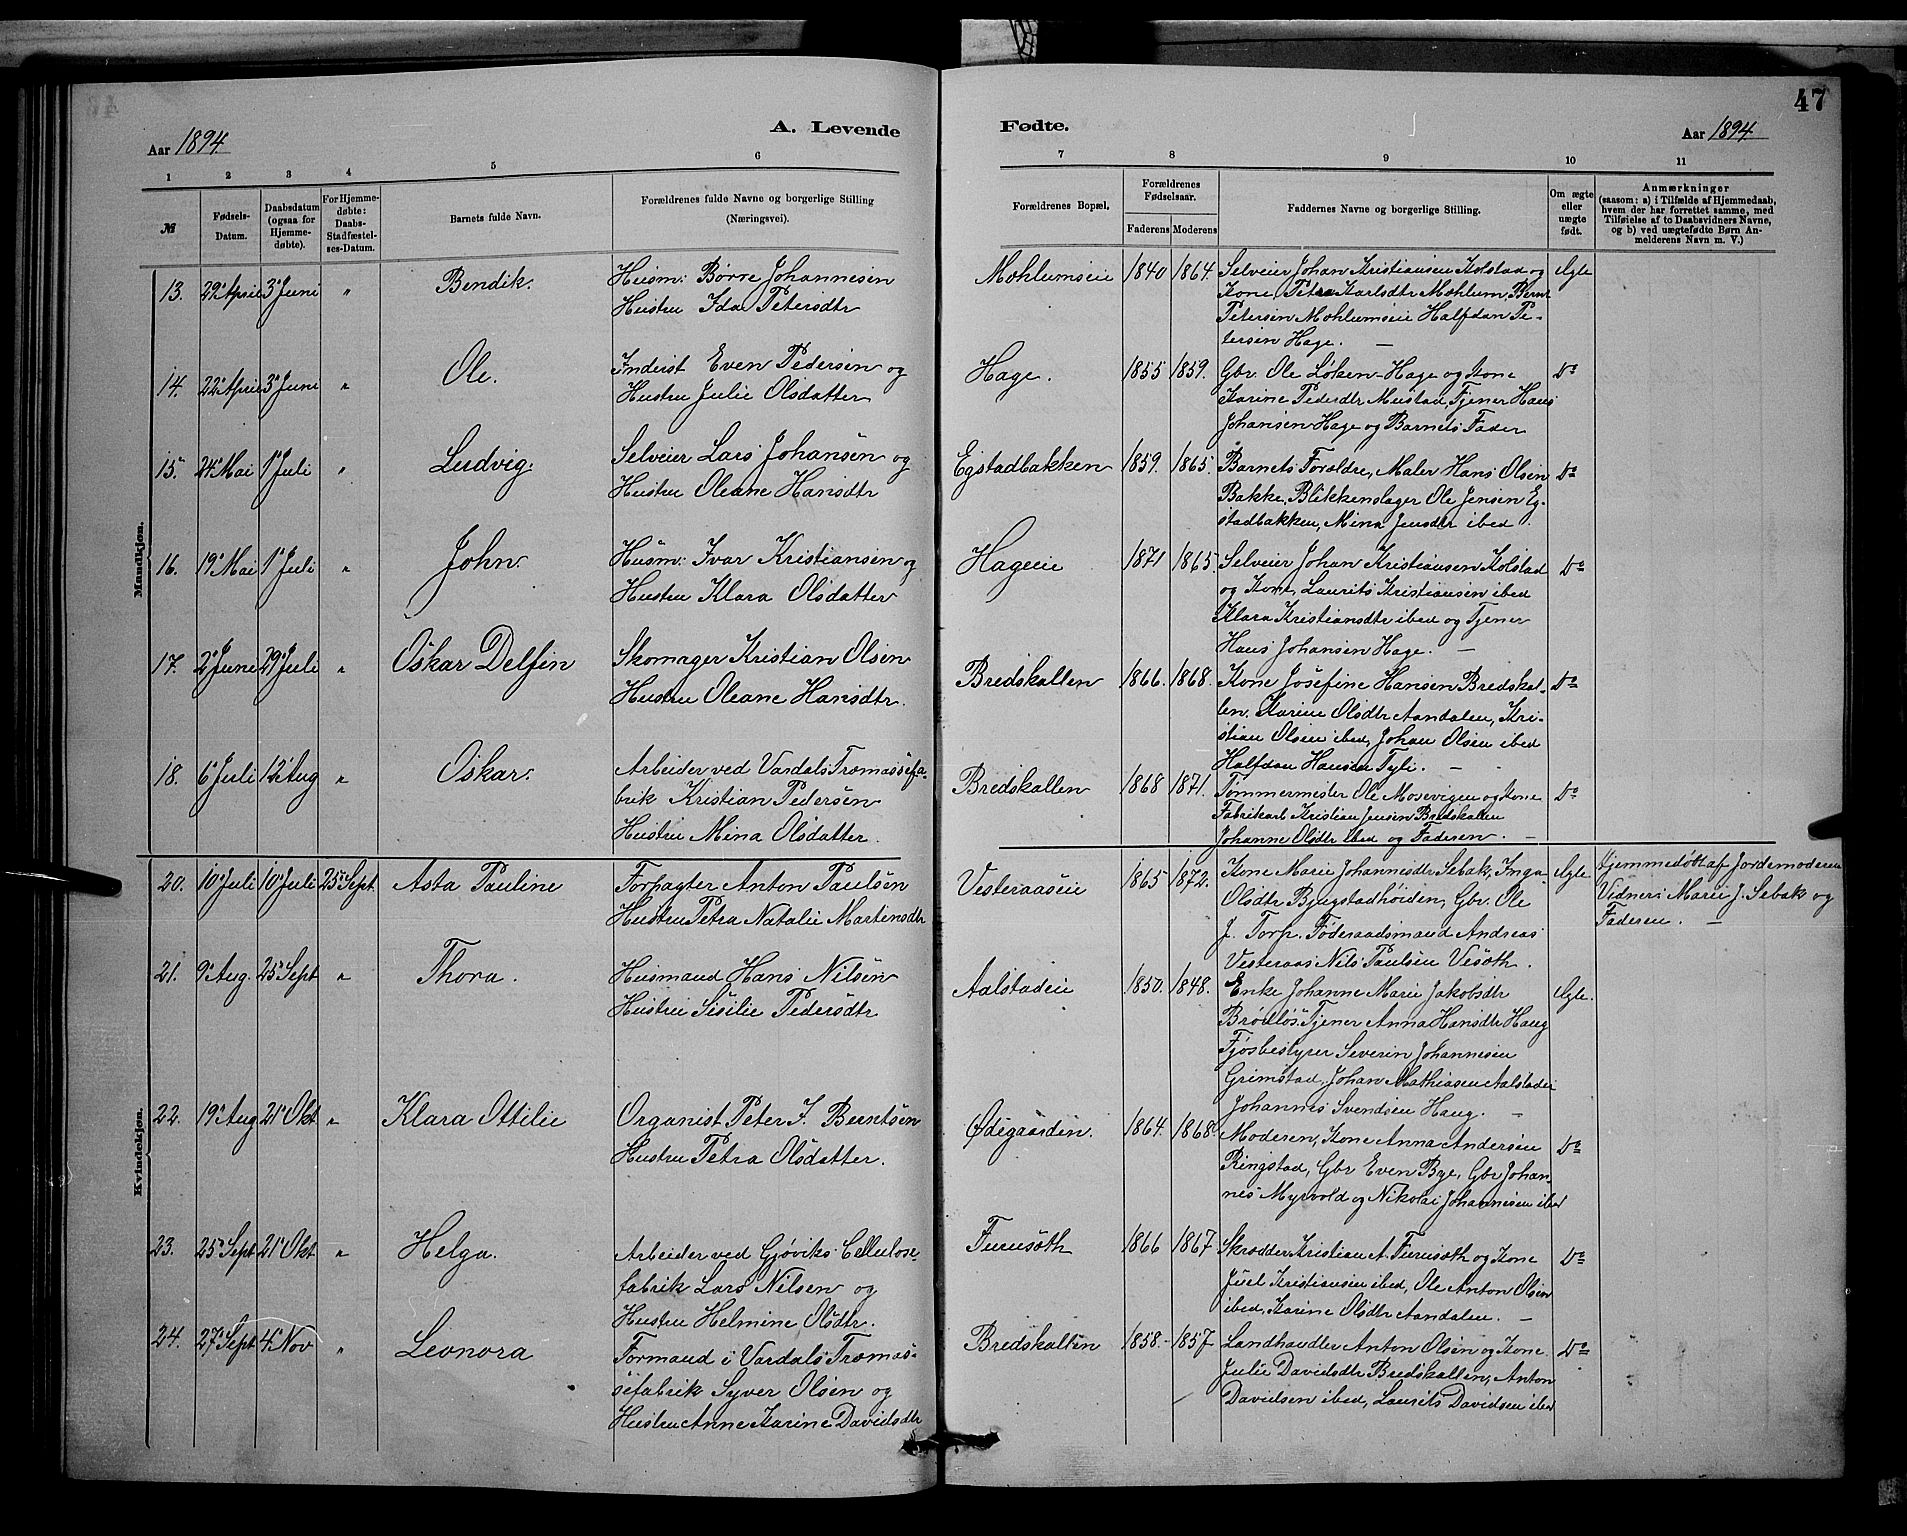 47
A. Levende Fødte.
Aar 1894
Aar 1894
1 2 3 4 5 6 7 8 9 10 11
№
Fødsels-
Datum.
Daabsdatum
(ogsaa for
Hjemme-
døbte).
For Hjemme-
døbte:
Daabs-
Stadfæstel-
ses-Datum.
Barnets fulde Navn.
Forældrenes fulde Navne og borgerlige Stilling
(Næringsvei).
Forældrenes Bopæl.
Forældrenes
Fødselsaar.
Faderens Moderens
Faddernes Navne og borgerlige Stilling.
Om ægte
eller
uægte
født.
Anmærkninger
(saasom: a) i Tilfælde af Hjemmedaab,
hvem der har forrettet samme, med
Tilføielse af to Daabsvidners Navne,
og b) ved uægtefødte Børn An-
melderens Navn m. V.)
Mandkjøn.
13. 29 April 3 Juni " Bendik.
Husm: Børre Johannesen
Hustru Ida Petersdtr
Mohlumseie 1840 1864.
Selveier Johan Kristiansen Kolstad og
Kone, Petra Karlsdtr Mohlum, Bernt
Petersen Mohlumseie Halfdan Pe-
tersen Hage. —
Ægte
14. 22 April 3 Juni " Ole.
Inderst Even Pedersen og
Hustru Julie Olsdatter
Hage. 1855 1859.
Gbr. Ole Løken-Hage og Kone
Karine Pedersdtr Mustad, Tjener Hans
Johansen Hage og Barnets Fader
Do
15. 24 Mai 1 Juli " Ludvig.
Selveier Lars Johansen og
Hustru Oleane Hansdtr
Egstadbakken 1859. 1865.
Barnets Foreldre, Maler Hans Olsen
Bakke, Blikkenslager Ole Jensen Eg-
stadbakken, Mina Jensdtr ibed.
Do
16. 19 Mai 1 Juli " John.
Husm: Ivar Kristiansen og
Hustru Klara Olsdatter
Hageeie 1871 1865.
Selveier Johan Kristiansen Kolstad
og Kone, Laurits Kristiansen ibed
Klara Kristiansdtr ibed og Tjener
Hans Johansen Hage. —
Do
17. 2 Juni 29 Juli " Oskar Delfin
Skomager Kristian Olsen
Hustru Oleane Hansdtr.
Bredskallen 1866. 1868.
Kone Josefine Hansen Bredskal-
len. Karine Olsdtr Aandalen, Kri-
stian Olsen ibed, Johan Olsen ibed
Halfdan Hansen Tyli. —
Do
18. 6 Juli 12 Aug " Oskar.
Arbeider ved Vardals Træmassefa-
brik Kristian Pedersen
Hustru Mina Olsdatter.
Bredskallen 1868 1871.
Tømmermester Ole Mosevigen og Kone
Fabrikarb Kristian Jensen Bredskallen
Johanne Olsdtr ibed og Faderen. —
Do
Kvindekjøn.
20. 10 Juli 10 Juli 25 Sept. Asta Pauline
Forpagter Anton Paulsen
Hustru Petra Natalie Martinsdtr
Vesteraaseie 1865 1872.
Kone Marie Johannesdtr Sebak, Inga
Olsdtr Bjugstadhøiden, Gbr. Ole
J. Torp. Føderaadsmand Andreas
Vesteraas Nils Paulsen Vesøth.
Ægte
Hjemmedøbt af Jordemoderen
Vidner: Marie J. Sebak og
Faderen. —
21. 9 Aug. 25 Sept " Thora.
Husmand Hans Nilsen
Hustru Sesilie Pedersdtr
Aalstadeie 1850. 1848.
Enke Johanne Marie Jakobsdtr
Brødløs. Tjener Anna Hansdtr Haug
Fjøsbestyrer Severin Johannesen
Grimstad, Johan Mathiasen Aalstadeie
Johannes Svendsen Haug. —
Ægte.
22. 19 Aug 21 Okt " Klara Ottilie
Organist Peter F. Berntsen
Hustru Petra Olsdatter.
Ødegaarden. 1864. 1868.
Moderen, Kone Anna Andersen
Ringstad, Gbr Even Bye, Gbr Johan-
nes Myrvold og Nikolai Johannesen ibed
Do
23. 25 Sept 21 Okt " Helga.
Arbeider ved Gjøviks Cellulose-
fabrik Lars Nilsen og
Hustru Helmine Olsdtr.
Furusøth 1866 1867
Skrædder Kristian A. Furusøth og Kone
Juel Kristiansen ibed, Ole Anton Olsen
ibed, Karine Olsdtr Aandalen. —
Do
24. 27 Sept 4 Nov " Leonora
Formand i Vardals Træmas-
sefabrik Syver Olsen og
Hustru Anne Karine Davidsdtr
Bredskallen 1858. 1857
Landhandler Anton Olsen og Kone
Julie Davidsdtr Bredskallen, Anton
Davidsen ibed, Laurits Davidsen ibed
Do